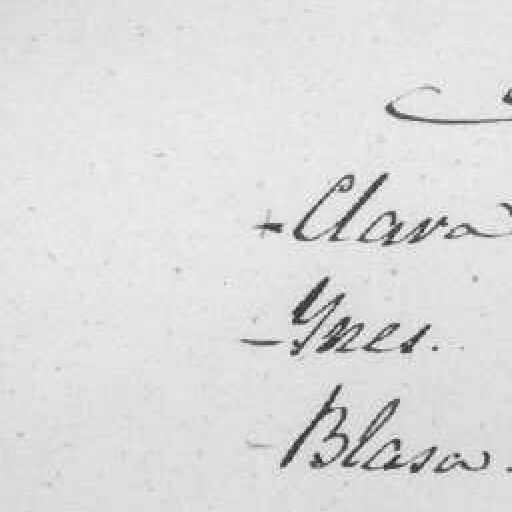 Clara
Ynes.
Blasa